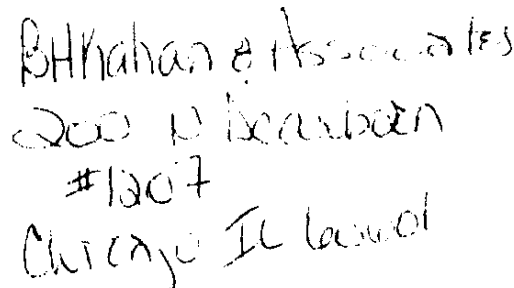 BHKahan & Associates
200 N Dearborn
#1207
Chicago IL 60601